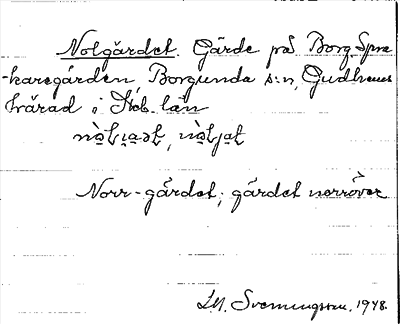 Nolgärdet. Gärde på Borg Spra
-karegården, Borgunda s:n, Gudhems
härad i Skb. län
Norr-gärdet; gärdet norröver
Svenningsson. 1948.